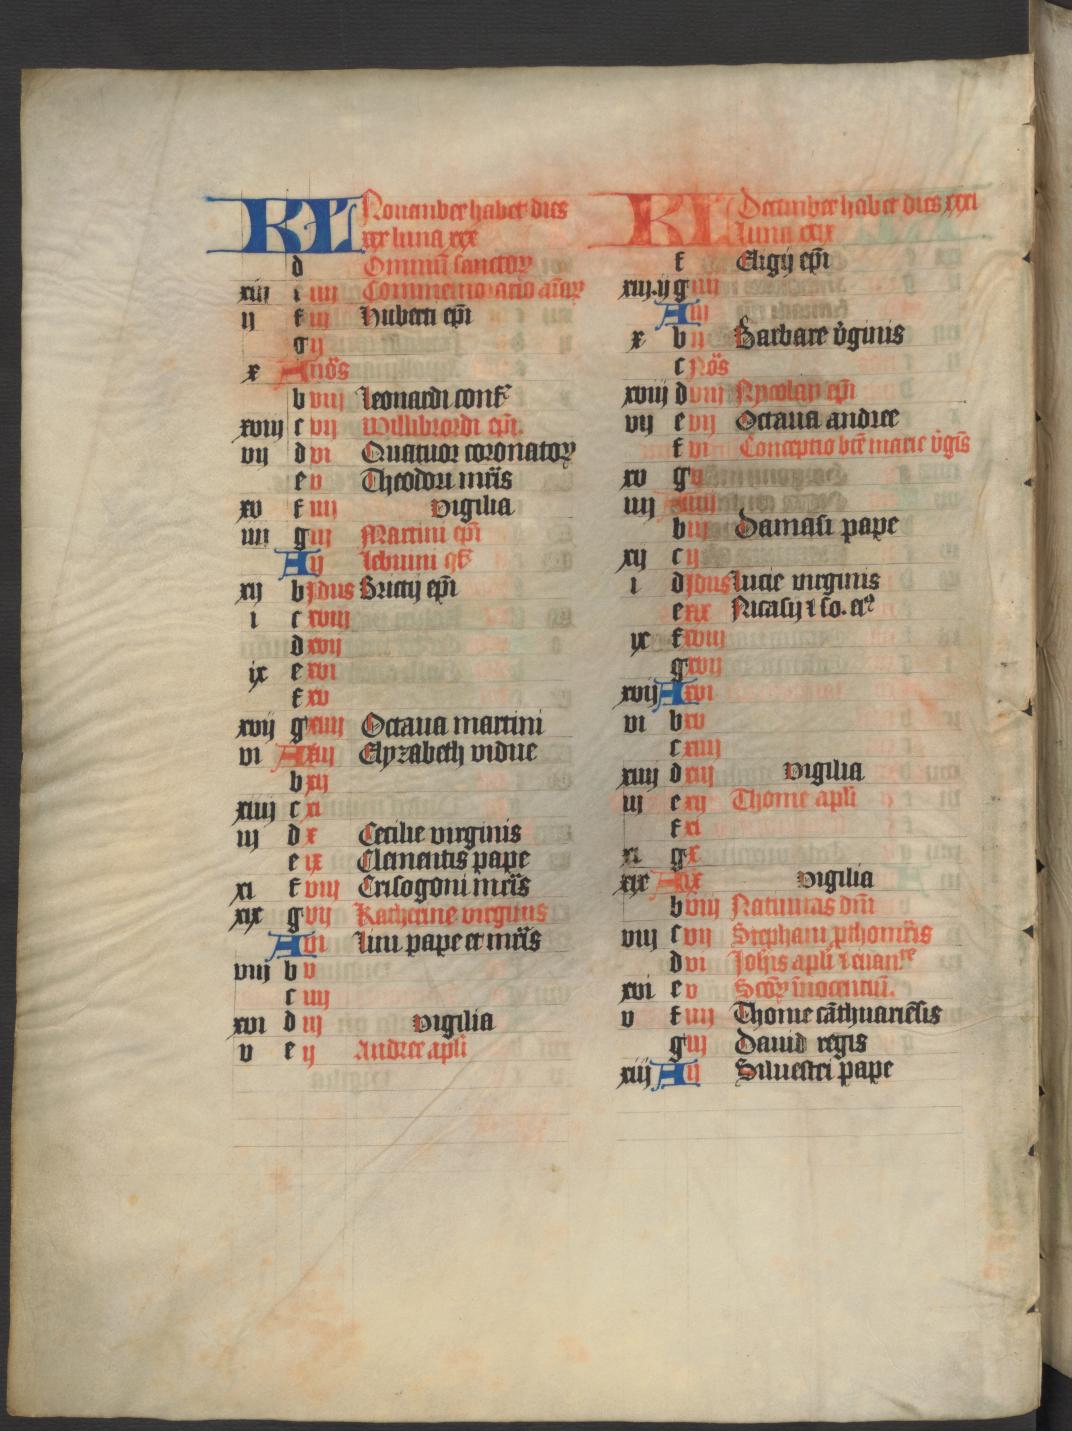 KL Nouember habet dies
xxx luna xxx
d Omniū sanctoꝝ
xiii e iiii Commemoratio aīaꝝ
ii f iii Huberti ep̄i
g ii
x A nōs
b viii Leonardi conf
xviii c vii Willibrordi ep̄i.
vii d vi Quatuor coronatoꝝ
e v Theodori mr̄is
xv f iiii vigilia
iiii g iii Martini ep̄i
A ii Lebuini
xii b Jdus Brictij ep̄i
i c xviii
d xvii
ix e xvi
f xv
xvii g xiiii Octaua martini
vi A xiii Elyzabeth vidue
b xii
xiiii c xi
iii d x Cecilie virginis
e ix Clementis pape
xi f viii Crisogoni mr̄is
xix g vii Katherine virginis
A vi Lini pape et mr̄is
viii b v
c iiii
xvi d iii vigilia
v e ii Andree apl̄i
KL December habet dies xxxi
luna xxix
f Eligij ep̄i
xiii.ii g iiii
A iii
x b ii Barbare v̄ginis
c Nōs
xviii d viii Nycolay ep̄i
vii e vii Octaua andree
f vi Conceptio btē marie v̄gīs
xv g v
iiii A iiii
b iii Damasi pape
xii c ii
i d Jdus Lucie virginis
e xix Nicasij ⁊ so. eiꝰ
ix f xviii
g xvii
xvii A xvi
vi b xv
c xiiii
xiiii d xiii vigilia
iii e xii Thome apl̄i
f xi
xi g x
xix A ix vigilia
b viii Natiuitas dn̄i
viii c vii Stephani pthomr̄is
d vi Joh̄is apl̄i ⁊ euan
xvi e v Sc̄oꝝ īnocentiū.
v f iiii Thome cāthuariēsis
g iii Dauid regis
xiii A ii Siluestri pape